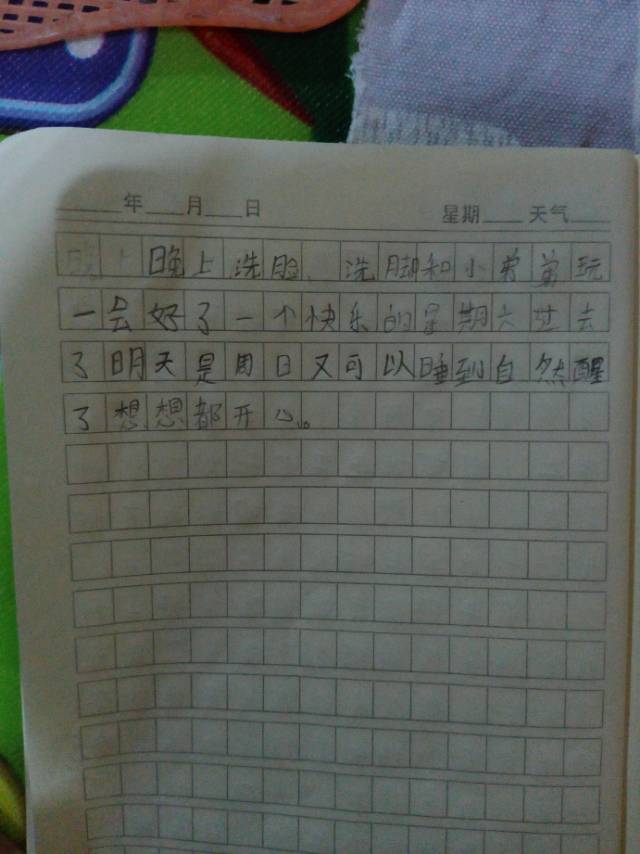 年 月 日 星期 天气
晚上洗脸、洗脚和小弟弟玩
一会好了一个快乐的星期六过去
了明天是周日又可以睡到自然醒
了想想都开心。